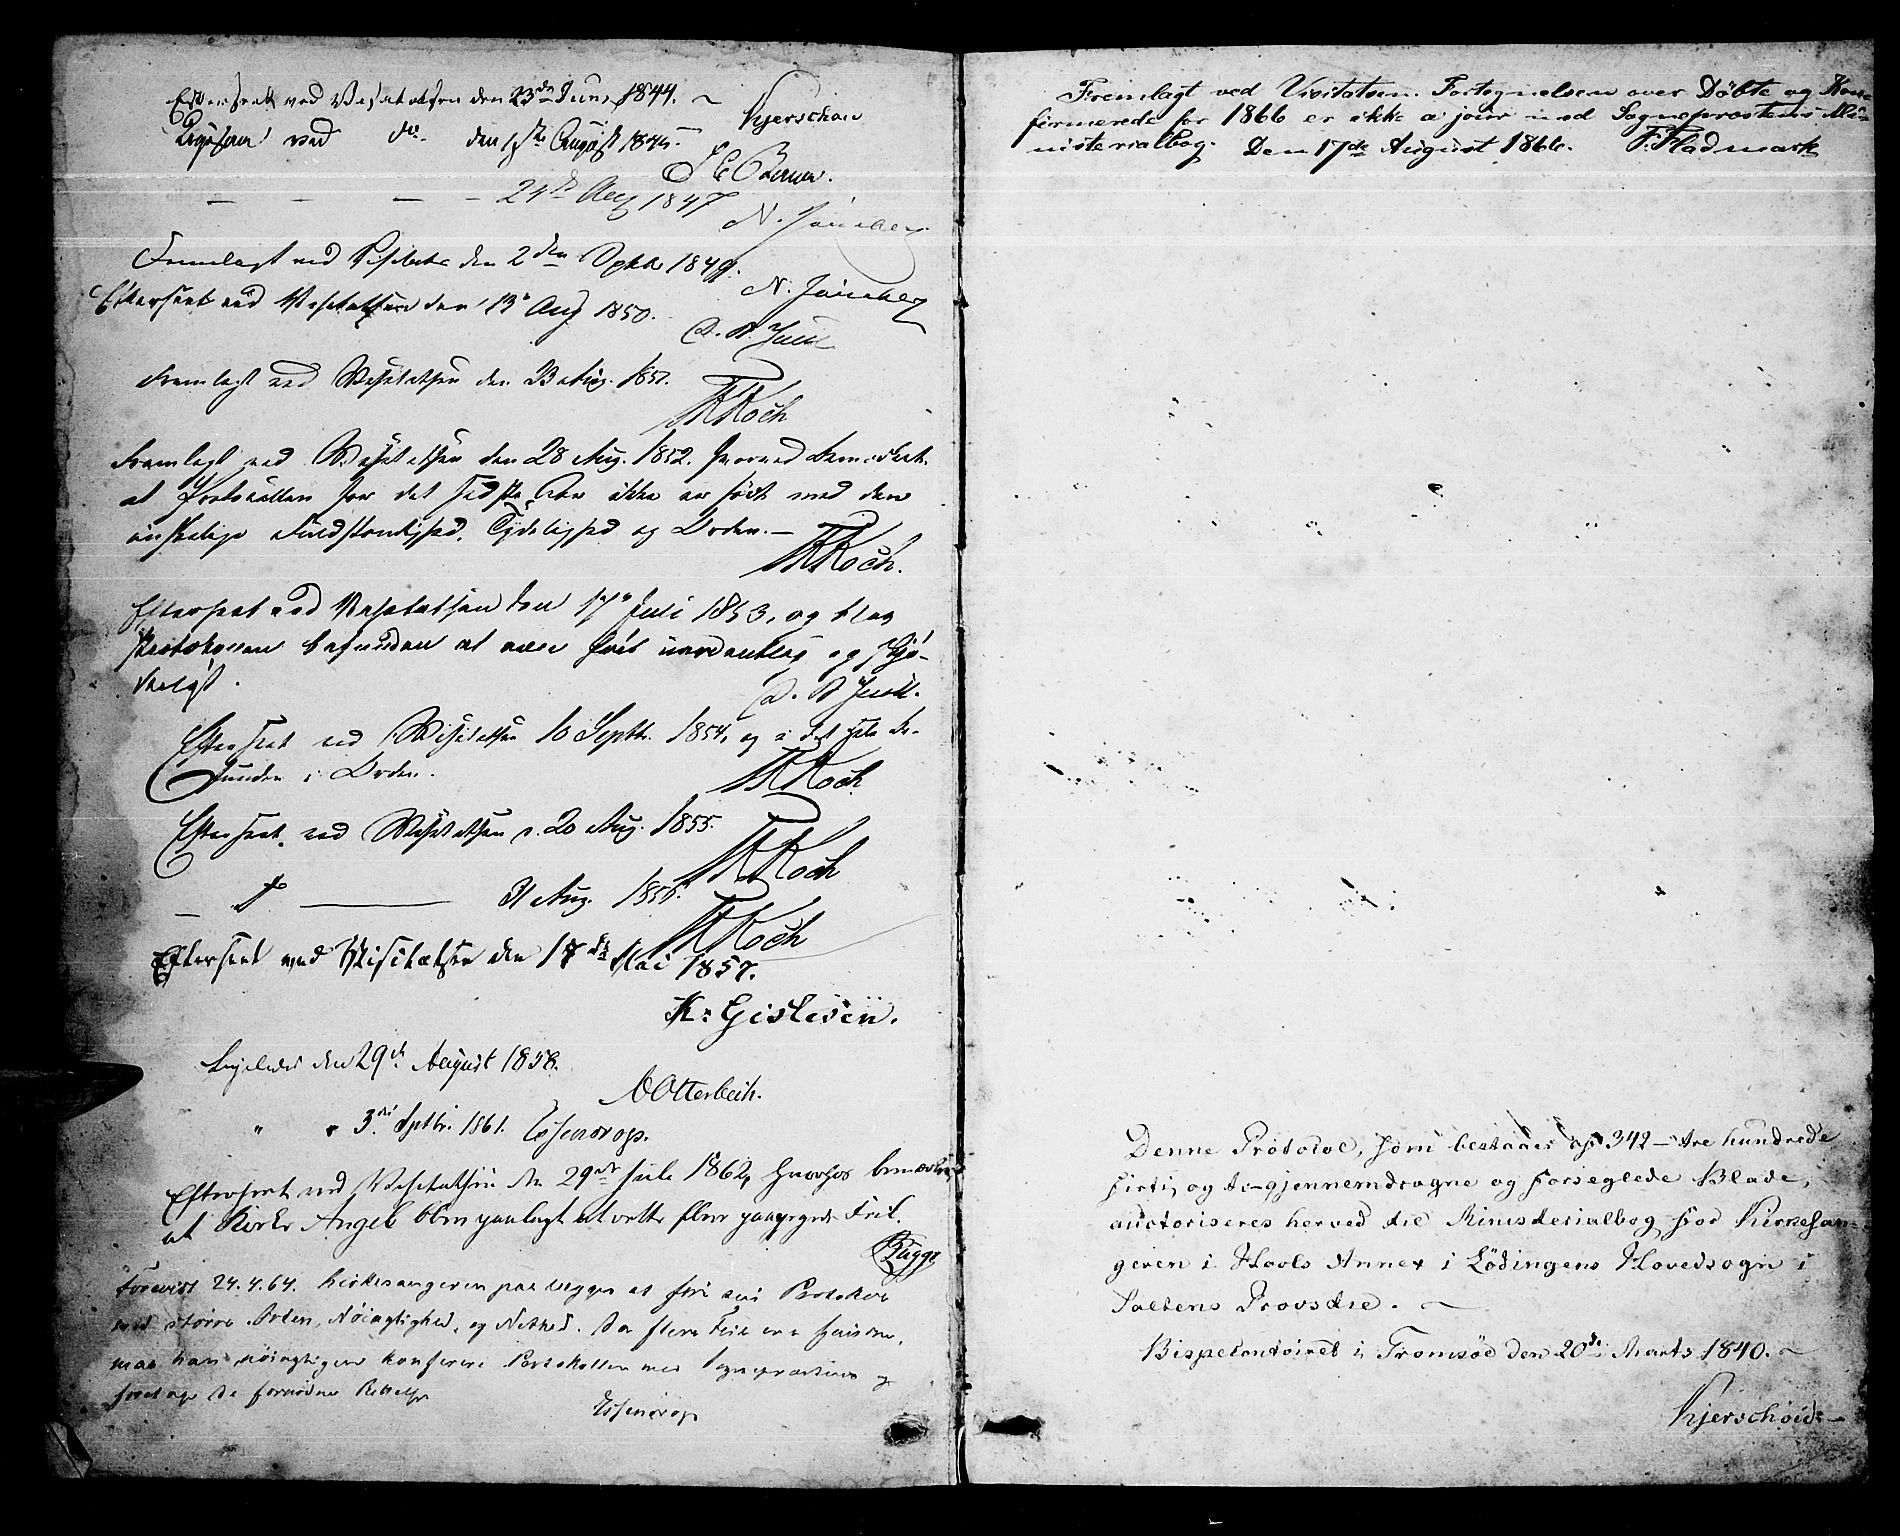 Efterseet ved Visitatsen den 23de Juni 1844. ~
Kjerschow
Ligesaa ved do. den August
24de Aug 1847
Fremlagt ved Visitats den 2den 1849.
Efterseet ved Visitatsen den 13de Aug 1850.
Fremlagt ved Visitatsen den 23 Aug. 185
Koch
Fremlagt ved Visitatsen den 28 Aug. 1852. hvorved bemærkedes
at Protocollen for det sidste Aar ikke er ført med den
ønskelige Fuldstændighed, Tydelighed og Orden. —
Koch.
Efterseet ved Visitatsen den 17de Juli 1853, og blev
Protokollen befunden at være ført uordentlig og skjø-
desløst.
Efterseet ved Visitatsen 10 Septbr. 1854, og i det Hele be-
funden i Orden.
Koch
Efterseet ved Visitatsen d. 20 Aug. 1855.
Koch
— do ——— 31 Aug. 1856.
Koch
Efterseet ved Visitatsen den 17de Mai 1857.
K: Gislesen.
Ligeledes den 29de August 1858.
AOtterbech.
" " 3die Septbr. 1861. Essendrop.
Efterseet ved Visitatsen den 29de Juli 1862, hvorhos bemærkes
at Kirkes. Angel blev paalagt at rette flere paapegede Feil.
Bugge
Forevist 24.4.64. Kirkesangeren paalægges at føre sin Protokol
med større Orden, Nøiagtighed, og Nethed. Da flere Feil ere fundne,
maa han nøiagtigen konferere Protokollen med Sognepræstens og
foretage de fornødne Rettelser
Essendrop
Fremlagt ved Visitatsen. Fortegnelsen over Döbte og Kon-
firmerede for 1866 er ikke a jour med Sognepræstens Mi-
nisterialbog. Den 17de August 1866. F. Fladmark
Denne Protocol, som bestaaer af 342 – tre hundrede
firti og to – gjennemdragne og forseglede Blade,
auctoriseres herved til Ministerialbog for Kirkesan-
geren i Hools Annex i Lödingens Hovedsogn i
Saltens Provstie. ~
Bispecontoiret i Tromsöe den 20de Marts 1840. ~
Kjerschow